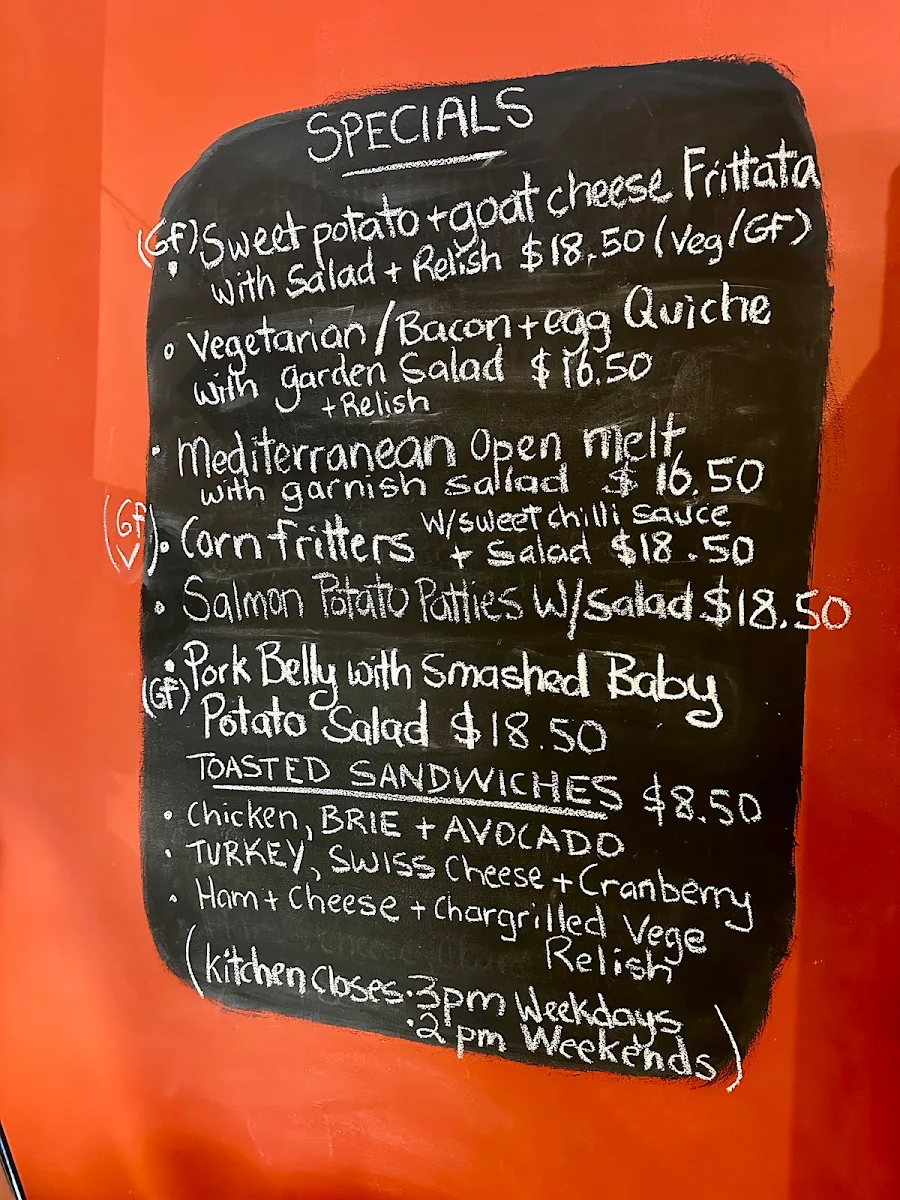 SPECIALS
(GF) Sweet potato + goat cheese Frittata
with Salad + Relish $18.50 (Veg/GF)
Vegetarian/Bacon + egg Quiche
with garden Salad $16.50
+ Relish
Mediterranean Open Melt
with garnish sallad $16.50
(GF) Corn fritters W/sweet chilli sauce
+ Salad $18.50
Salmon Potato Patties W/Salad $18.50
(GF) Pork Belly with Smashed Baby
Potato Salad $18.50
TOASTED SANDWICHES $8.50
Chicken, BRIE + AVOCADO
TURKEY, SWISS Cheese + Cranberry
Ham + Cheese + Chargrilled Vege
Relish
(kitchen closes · 3pm Weekdays
· 2 pm Weekends)